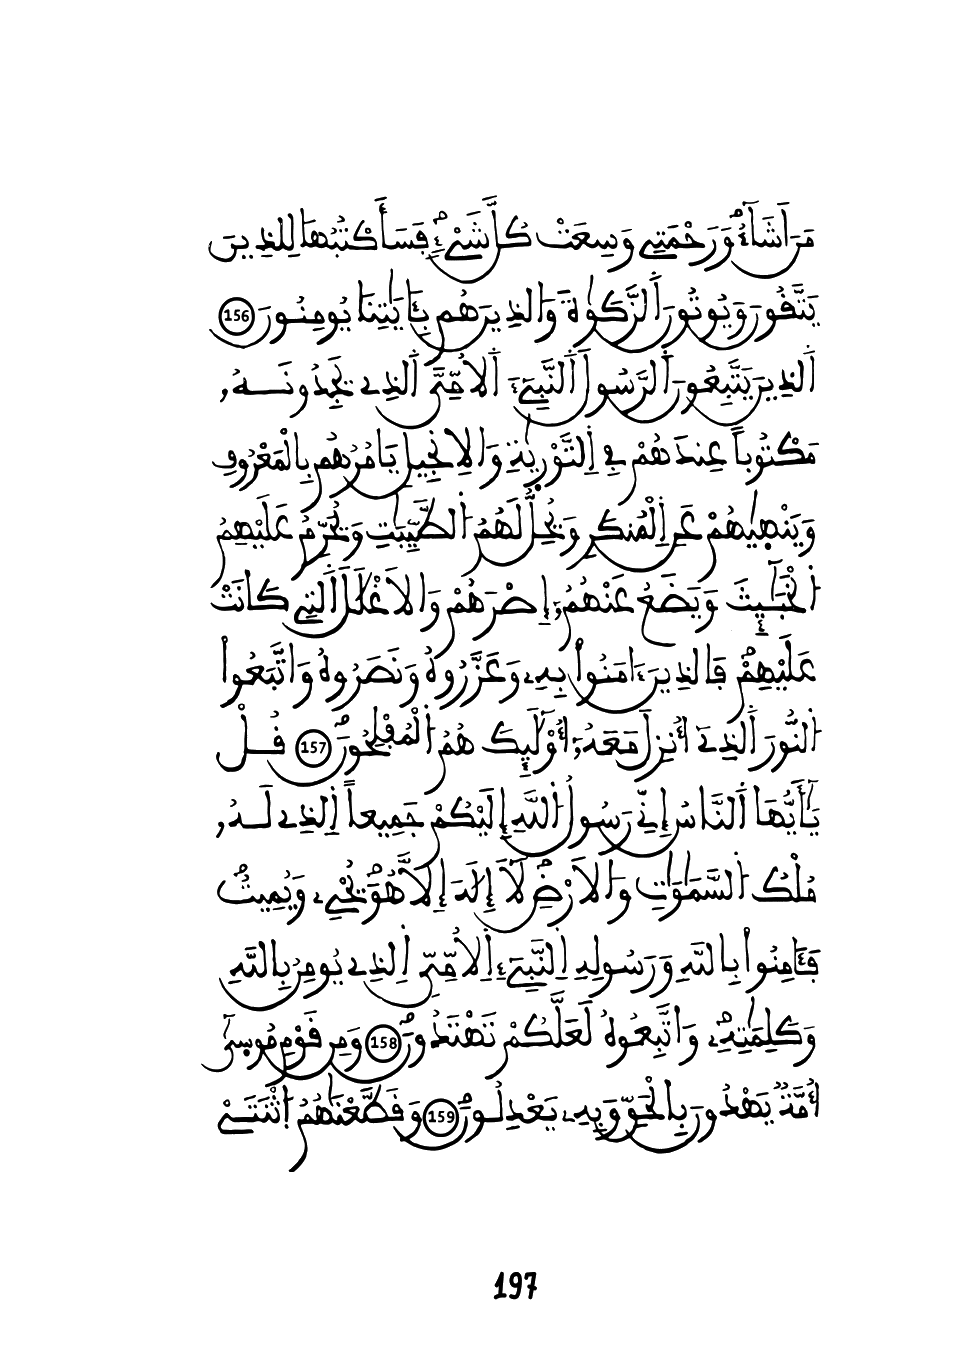 مَنَ اَشَآءُ وَرَحْمَتِے وَسِعَتْ كُلَّ شَےْءٖ فَسَأَكْتُبُهَا لِلذِينَ
يَتَّقُونَ وَيُوتُونَ اَلزَّكَوٰةَ وَالذِينَ هُم بِـَٔايَٰتِنَا يُومِنُونَ 156
اَلذِينَ يَتَّبِعُونَ اَلرَّسُولَ اَلنَّبِےٓءَ اَلُامِّيَّ اَلذِے يَجِدُونَهُۥ
مَكْتُوباً عِندَهُمْ فِے اِلتَّوْر۪يٰةِ وَالِانجِيلِ يَامُرُهُم بِالْمَعْرُوفِ
وَيَنْه۪يٰهُمْ عَنِ اِلْمُنكَرِ وَيُحِلُّ لَهُمُ اُلطَّيِّبَٰتِ وَيُحَرِّمُ عَلَيْهِمُ
اُلْخَبَٰٓئِثَ وَيَضَعُ عَنْهُمُۥٓ إِصْرَهُمْ وَالَاغْلَٰلَ اَلتِے كَانَتْ
عَلَيْهِمْ فَالذِينَ ءَامَنُواْ بِهِۦ وَعَزَّرُوهُ وَنَصَرُوهُ وَاتَّبَعُواْ
اُلنُّورَ اَلذِےٓ أُنزِلَ مَعَهُۥٓ أُوْلَٰٓئِكَ هُمُ اُلْمُفْلِحُونَ 157 قُلْ
يَٰٓأَيُّهَا اَلنَّاسُ إِنِّے رَسُولُ اُللَّهِ إِلَيْكُمْ جَمِيعاً اِلذِے لَهُۥ
مُلْكُ اُلسَّمَٰوَٰتِ وَالَارْضِ لَآ إِلَٰهَ إِلَّا هُوَ يُحْيِۦ وَيُمِيتُ
فَـَٔامِنُواْ بِاللَّهِ وَرَسُولِهِ اِلنَّبِےٓءِ اِلُامِّيِّ اِلذِے يُومِنُ بِاللَّهِ
وَكَلِمَٰتِهِۦ وَاتَّبِعُوهُ لَعَلَّكُمْ تَهْتَدُونَ 158 وَمِن قَوْمِ مُوس۪ىٰٓ
أُمَّةٌ يَهْدُونَ بِالْحَقِّ وَبِهِۦ يَعْدِلُونَ 159 وَقَطَّعْنَٰهُمُ اُثْنَتَےْ
197